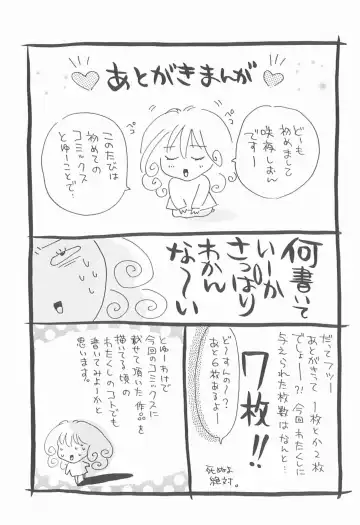 あとがきまんが
どーも
初めまして
咲梅しおん
ですー
ペコ
ペコ
このたびは
初めての
コミックス
とゆーことで、
何書いて
いーか
さっぱり
わかん
な〜い
だってフツー
あとがきって
1枚とか2枚
でしょー?!
今回わたくしに
与えられた枚数はなんと…
7枚!!
どーすんの!?
あと6枚あるよー
死ぬよ
絶対。
とゆーわけで
今回のコミックスに
載せて頂いた作品を
描いてる頃の
わたくしのコトでも
書いてみよーかと
思います。